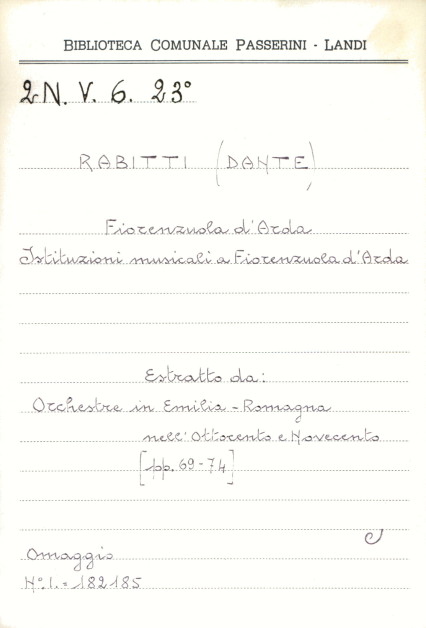 BIBLIOTECA COMUNALE PASSERINI - LANDI
2N. V. 6. 23°
RABITTI (DANTE)
Fiorenzuola d'Arda
Istituzioni musicali a Fiorenzuola d'Arda
Estratto da:
Orchestre in Emilia - Romagna
nell'Ottocento e Novecento
[pp. 69-74]
Omaggio
N°. I. = 182185